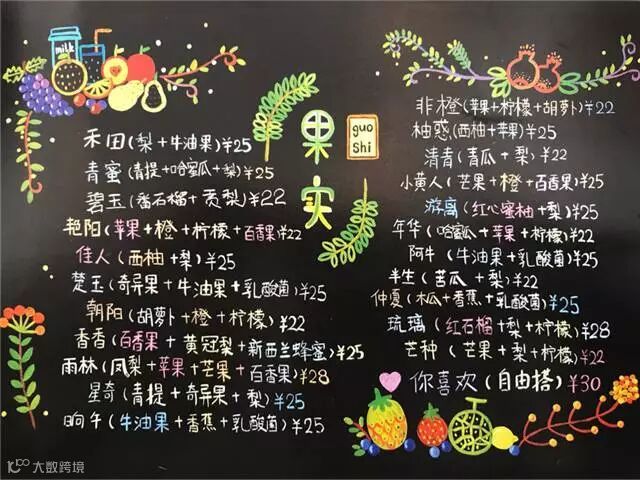 milk
禾田(梨+牛油果)¥25
青蜜(青提+哈蜜瓜+梨)¥25
碧玉(番石榴+贡梨)¥22
艳阳(苹果+橙+柠檬+百香果)¥22
佳人(西柚+梨)¥25
楚玉(奇异果+牛油果+乳酸菌)¥25
朝阳(胡萝卜+橙+柠檬)¥22
香香(百香果+黄冠梨+新西兰蜂蜜)¥25
雨林(凤梨+苹果+芒果+百香果)¥28
星奇(青提+奇异果+梨)¥25
晌午(牛油果+香蕉+乳酸菌)¥25
果实
guo
Shi
非橙(苹果+柠檬+胡萝卜)¥22
柚惑(西柚+苹果)¥25
清青(青瓜+梨)¥22
小黄人(芒果+橙+百香果)¥25
游离(红心蜜柚+梨)¥25
年华(哈蜜瓜+苹果+柠檬)¥22
阿牛(牛油果+乳酸菌)¥25
半生(苦瓜+梨)¥22
仲夏(木瓜+香蕉+乳酸菌)¥25
琉璃(红石榴+梨+柠檬)¥28
芒种(芒果+梨+柠檬)¥22
你喜欢(自由搭)¥30
大数跨境